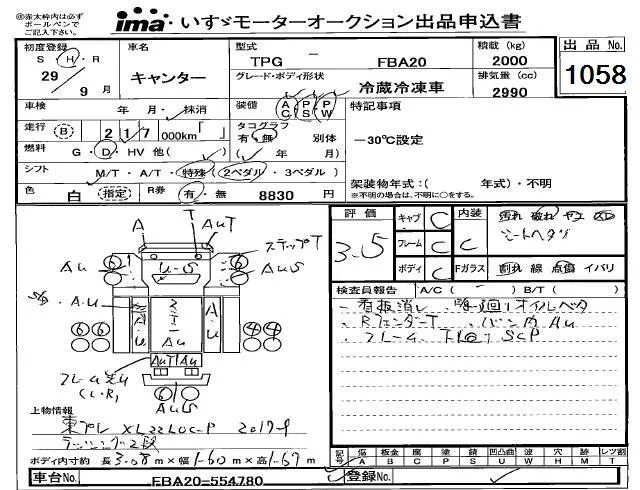 ⑧赤太枠内は必ず
ボールペンで
ご記入下さい。
ima いすゞモーターオークション出品申込書
初度登録 車名 型式 積載 (kg) 出品 No.
S・H・R TPG FBA20 2000
29 9 月 キャンター グレード・ボディ形状 排気量 (cc) 1058
冷蔵冷凍車 2990
車検 年 月・抹消 装備 AC PS PW 特記事項
走行 B 217 000km「 」 タコグラフ 有・無 別体
燃料 G・D・HV 他( ) ( 年 月) −30℃設定
シフト M/T・A/T・特殊(2ペダル・3ペダル) 架装物年式:( 年式)・不明
色 白 指定 R券 有・無 8830 円 ※不明の場合は、不明に○をする。
評価 3.5
キャブ C 内装 C 汚れ 破れ ヤエ スレ
フレーム C シートヘタリ
ボディ C Fガラス 割れ 線 点傷 イバリ
検査員報告 A/C( − ) B/T( )
看板消し
Rフェンダー T バン内 AU
フレーム SCP
T AUT
ステップT
AU AUS
U-S
6 6
A.U
ミミ
T
AU AU AU
6 6 4 4
AUT AU
フレーム
(L・R)
6
AUS
上物情報
東プレ XL22LOC-P 2017年
ラッシング2段
ボディ内寸約 長 3.08 m×幅 1.60 m×高 1.67 m
記号 傷 A 板金 B 腐 C 塗 P 錆 S 凹凸曲 U 波 W 穴 H 跡 M レツ割 T
車台No. FBA20-554780 登録No.